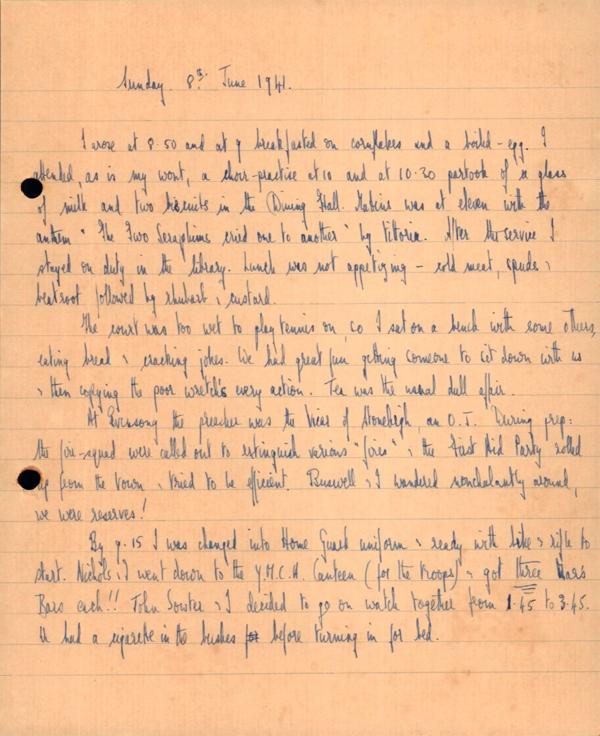 Sunday. 8th. June 1941.
I arose at 8.50 and at 9 breakfasted on cornflakes and a boiled-egg. I
attended, as is my wont, a choir-practice at 10 and at 10.30 partook of a glass
of milk and two biscuits in the Dining Hall. Matins was at eleven with the
anthem "The Two Seraphims cried one to another" by Vittoria. After the service I
stayed on duty in the library. Lunch was not appetizing - cold meat, spuds &
beetroot followed by rhubarb & custard.
The court was too wet to play tennis on, so I sat on a bench with some others,
eating bread & cracking jokes. We had great fun getting someone to sit down with us
& then copying the poor wretch's every action. Tea was the usual dull affair.
At Evensong the preacher was the Vicar of Stoneleigh, an O.T. During prep:
the fire-squad were called out to extinguish various "fires" & the First Aid Party rolled
up from the town & tried to be efficient. Buswell & I wandered nonchalantly around,
we were reserves!
By 9.15 I was changed into Home Guard uniform & ready with bike & rifle to
start. Nichols & I went down to the Y.M.C.A. Canteen (for the troops) & got three Mars
Bars each!! John Souter & I decided to go on watch together from 1.45 to 3.45.
We had a cigarette in the bushes before turning in for bed.